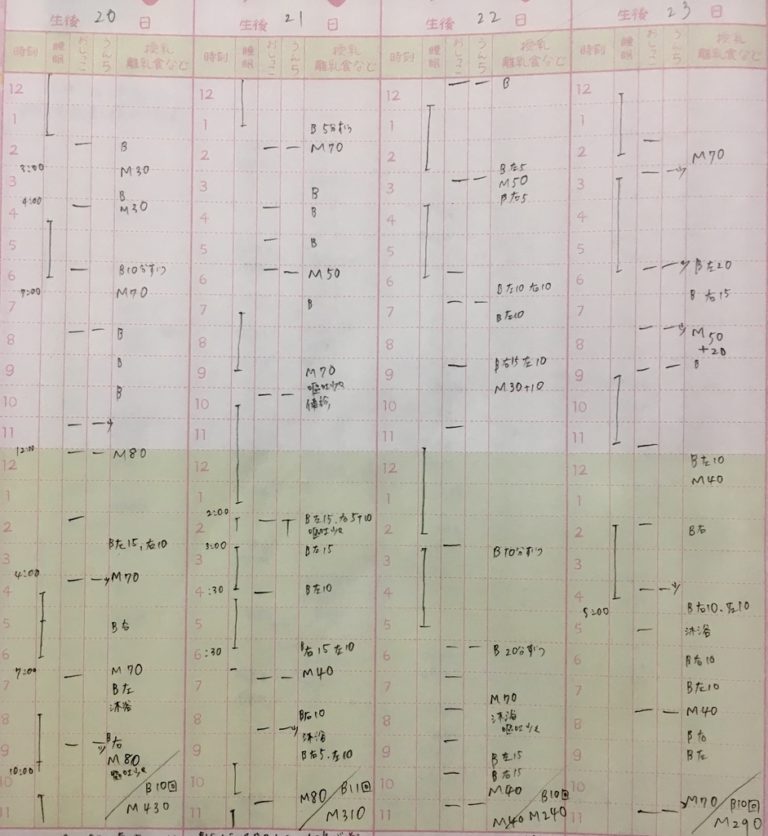 生後 20 日
時刻 睡眠 おしっこ うんち 授乳 離乳食など
12
1
2 B
3:00 M30
3
4:00 B
4 M30
5
6 B10分ずつ
7:00 M70
7
8 B
9 B
10 B
11
12:00 M80
12
1
2
B左15, 右10
3
4:00 M70
4
5 B右
6
7:00 M70
7 B左
沐浴
8
B右
9 M80
嘔吐少々
10:00
10 B10回
11 M430
生後 21 日
時刻 睡眠 おしっこ うんち 授乳 離乳食など
12
1 B5分ずつ
2 M70
3 B
4 B
5 B
6 M50
7 B
8
9 M70
嘔吐少々
10
11
12
1
2:00 B左15, 右5+10
2 嘔吐少々
3:00 B左15
3
4:30 B左10
5
6:30 B右15 左10
7 M40
B右10
8 沐浴
9 B右5, 左10
10 M80 B11回
11 M310
生後 22 日
時刻 睡眠 おしっこ うんち 授乳 離乳食など
12 B
1
2
B左5
3 M50
B左5
4
5
6
B左10 右10
7 B左10
8
9 B右15 左10
M30+10
10
11
12
1
2
3 B10分ずつ
4
5
6 B20分ずつ
7
M70
8 沐浴
嘔吐少々
9 B左15
B右15
10 M40 B10回
11 M40 M240
生後 23 日
時刻 睡眠 おしっこ うんち 授乳 離乳食など
12
1
2 M70
3
4
5
B左20
6 B右15
7
8 M50
+20
9 B
10
11
12 B左10
M40
1
2 B右
3
4
5:00 B右10, 左10
5 沐浴
6 B右10
7 B左10
8 M40
B右
9 B左
10
M70 B10回
11 M290